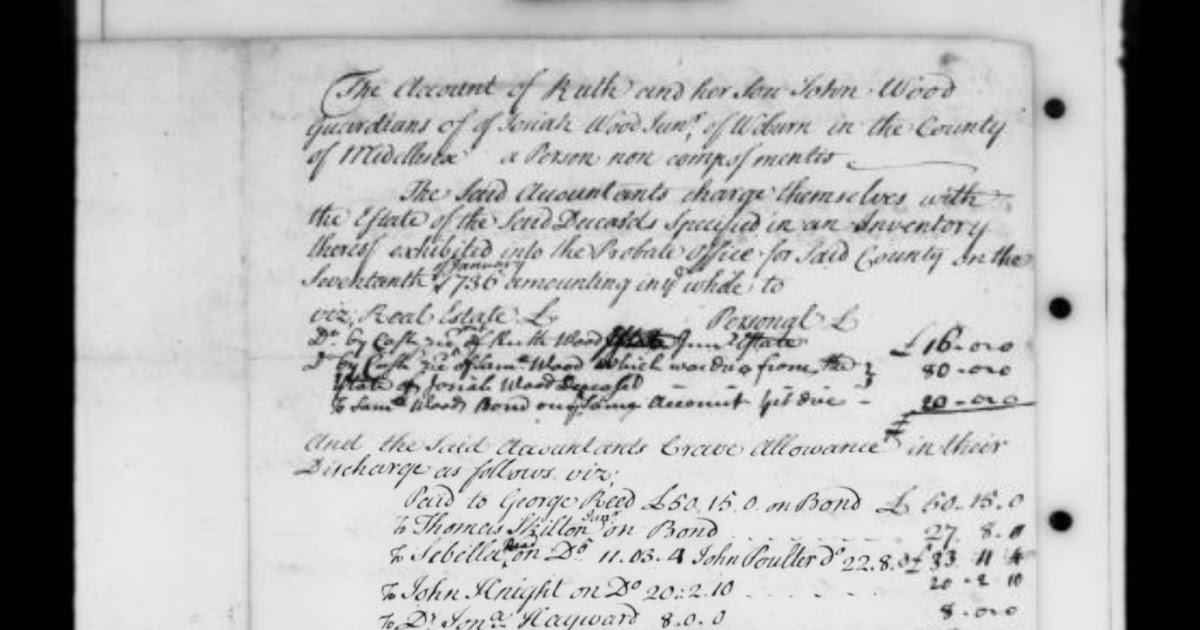 The Account of Ruth and her Son John Wood
Guardians of Josiah Wood Junr. of Woburn in the County
of Middlesex a Person non compos mentis
The Said Accountants charge themselves with
the Estate of the Said Deceasds Specified in an Inventory
thereof exhibited into the Probate Office for Said County on the
Seventeenth of January 1736 amounting in ye whole to
viz. Real Estate £ Personal £
Do. by Cash of Ruth Wood Junr. Estate £16-0-0
by Cash of Saml. Wood which was due from the 80-0-0
Estate of Josiah Wood Deceased
To Saml. Woods Bond on Account yet due - 20-0-0
And the Said Accountants Crave Allowance in their
Discharge as follows viz;
Paid to George Reed £50.15.0 on Bond £ 50.15.0
To Thomas Skilton Junr. on Bond 27.8.0
To Sebilla on Do. 11.03.4 John Poulter do. 22.8.0 £33 11 4
To John Knight on Do 20.2.10 20-2 10
To Dr. Jona. Hayward 8.0.0 8-0-0